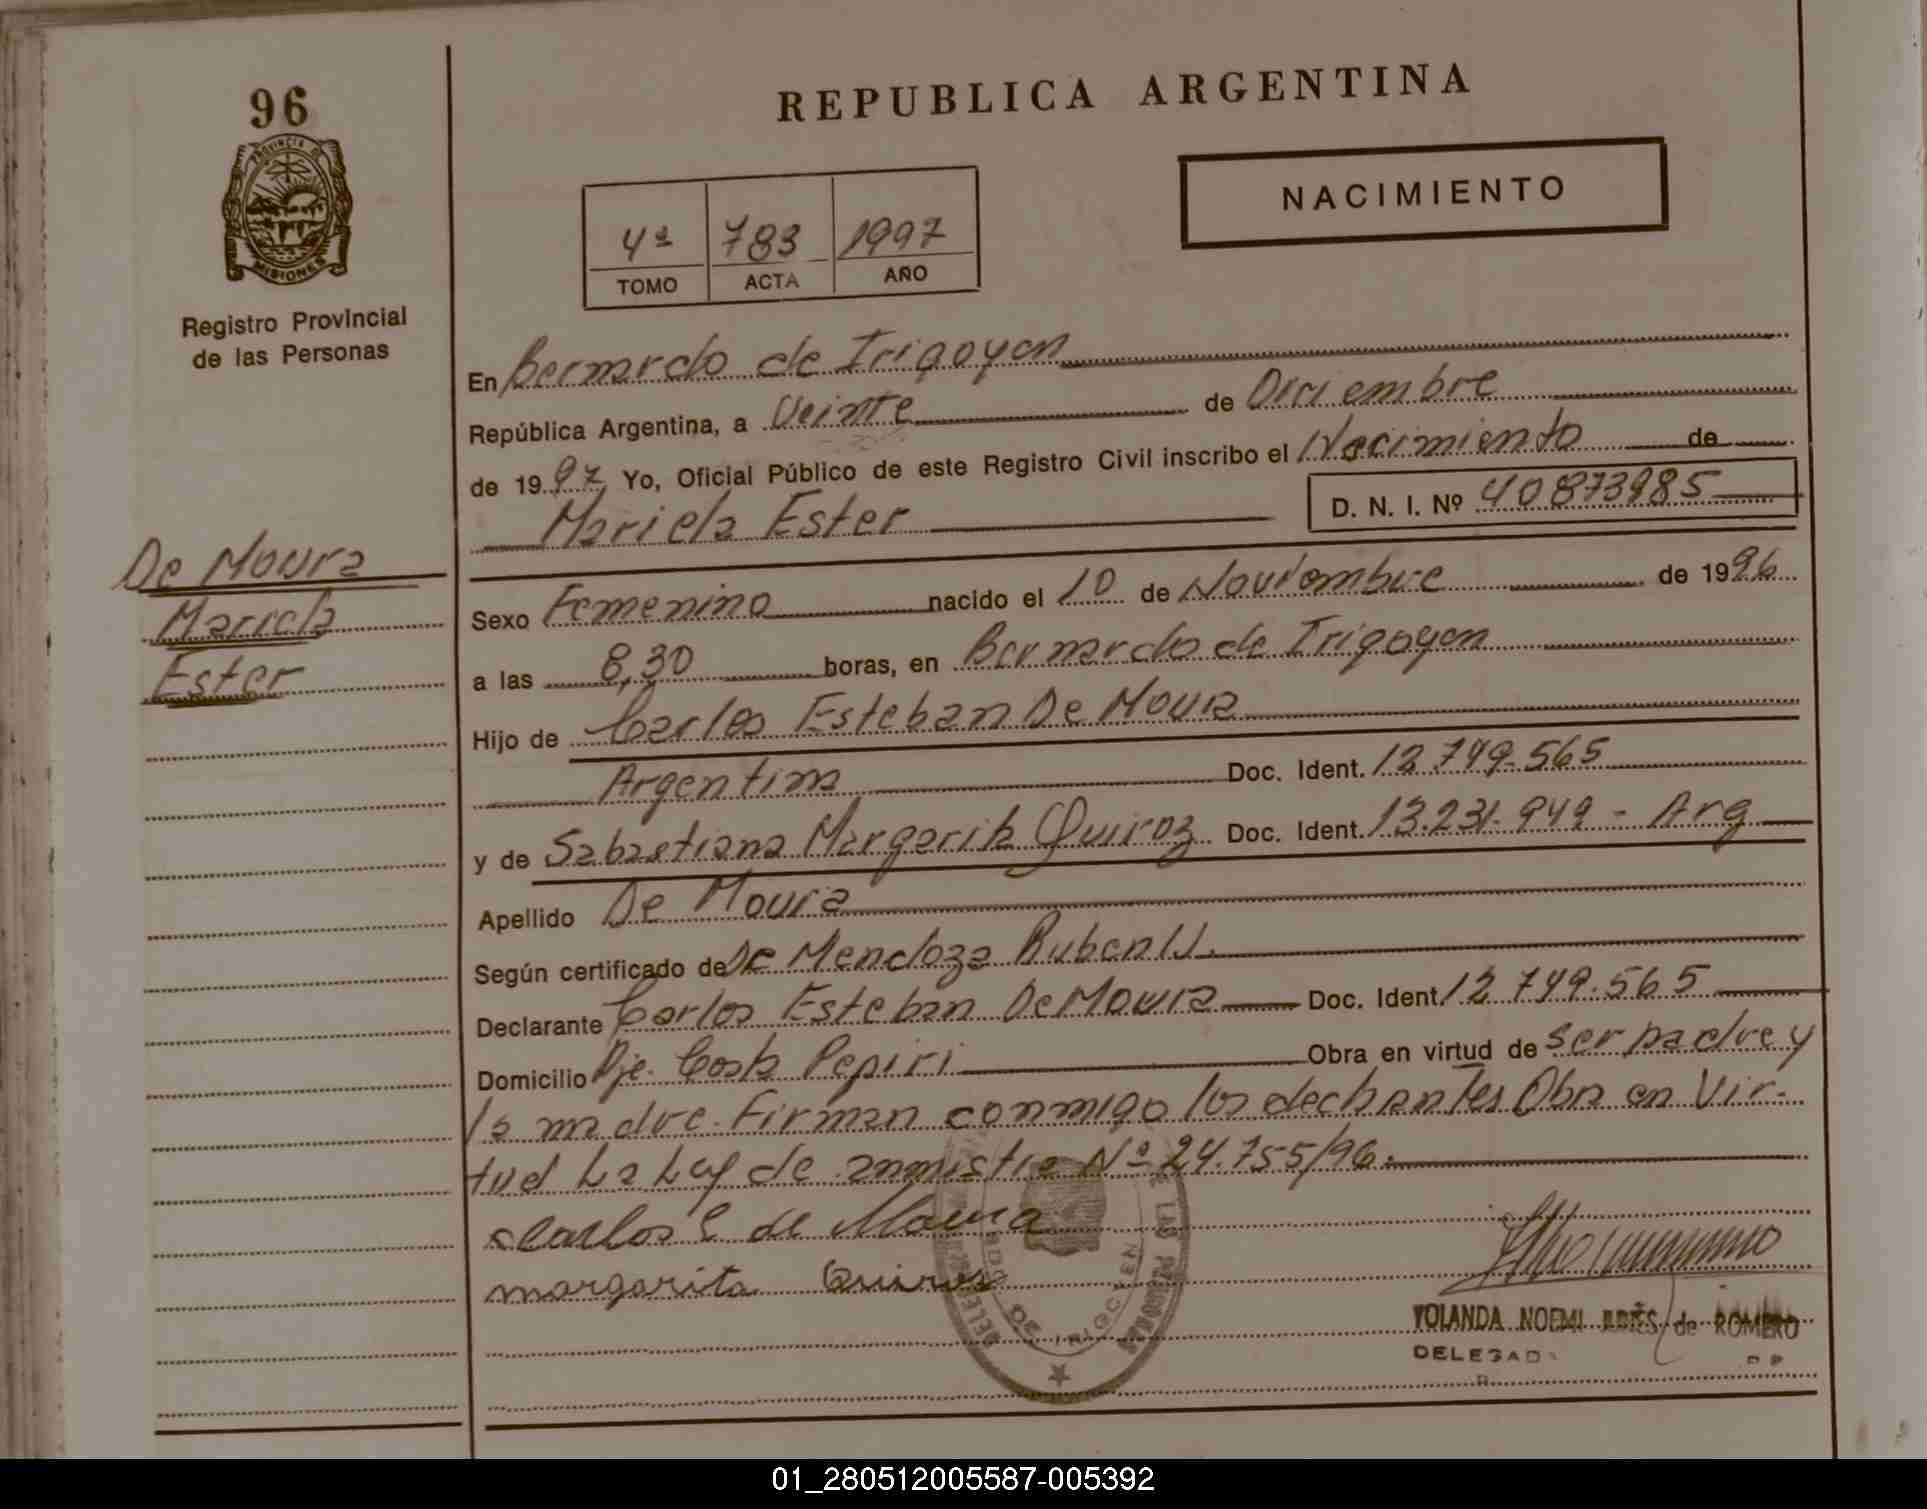 96
PROVINCIA DE
MISIONES
Registro Provincial
de las Personas
De Moura
Mariela
Ester
REPUBLICA ARGENTINA
NACIMIENTO
4º 783 1997
TOMO ACTA AÑO
En Bernardo de Irigoyen
República Argentina, a Veinte de Diciembre
de 1997 Yo, Oficial Público de este Registro Civil inscribo el Nacimiento de
Mariela Ester D. N. I. Nº 40873985
Sexo Femenino nacido el 10 de Noviembre de 1996
a las 8,30 horas, en Bernardo de Irigoyen
Hijo de Carlos Esteban De Moura
Argentina Doc. Ident. 12.749.565
y de Sabastiana Margarita Quiroz Doc. Ident. 13.231.949 - Arg
Apellido De Moura
Según certificado de De Mendoza Ruben
Declarante Carlos Esteban De Moura Doc. Ident 12.749.565
Domicilio Pje. Costa Pepiri Obra en virtud de ser padre y
la madre. Firman conmigo los declarantes Obra en Vir-
tud La Ley de anmistia Nº 24.755/96.
Carlos E de Moura
margarita Quiroz
DE IRIGOYEN
YOLANDA NOEMI de ROMERO
DELEGADA
01_280512005587-005392